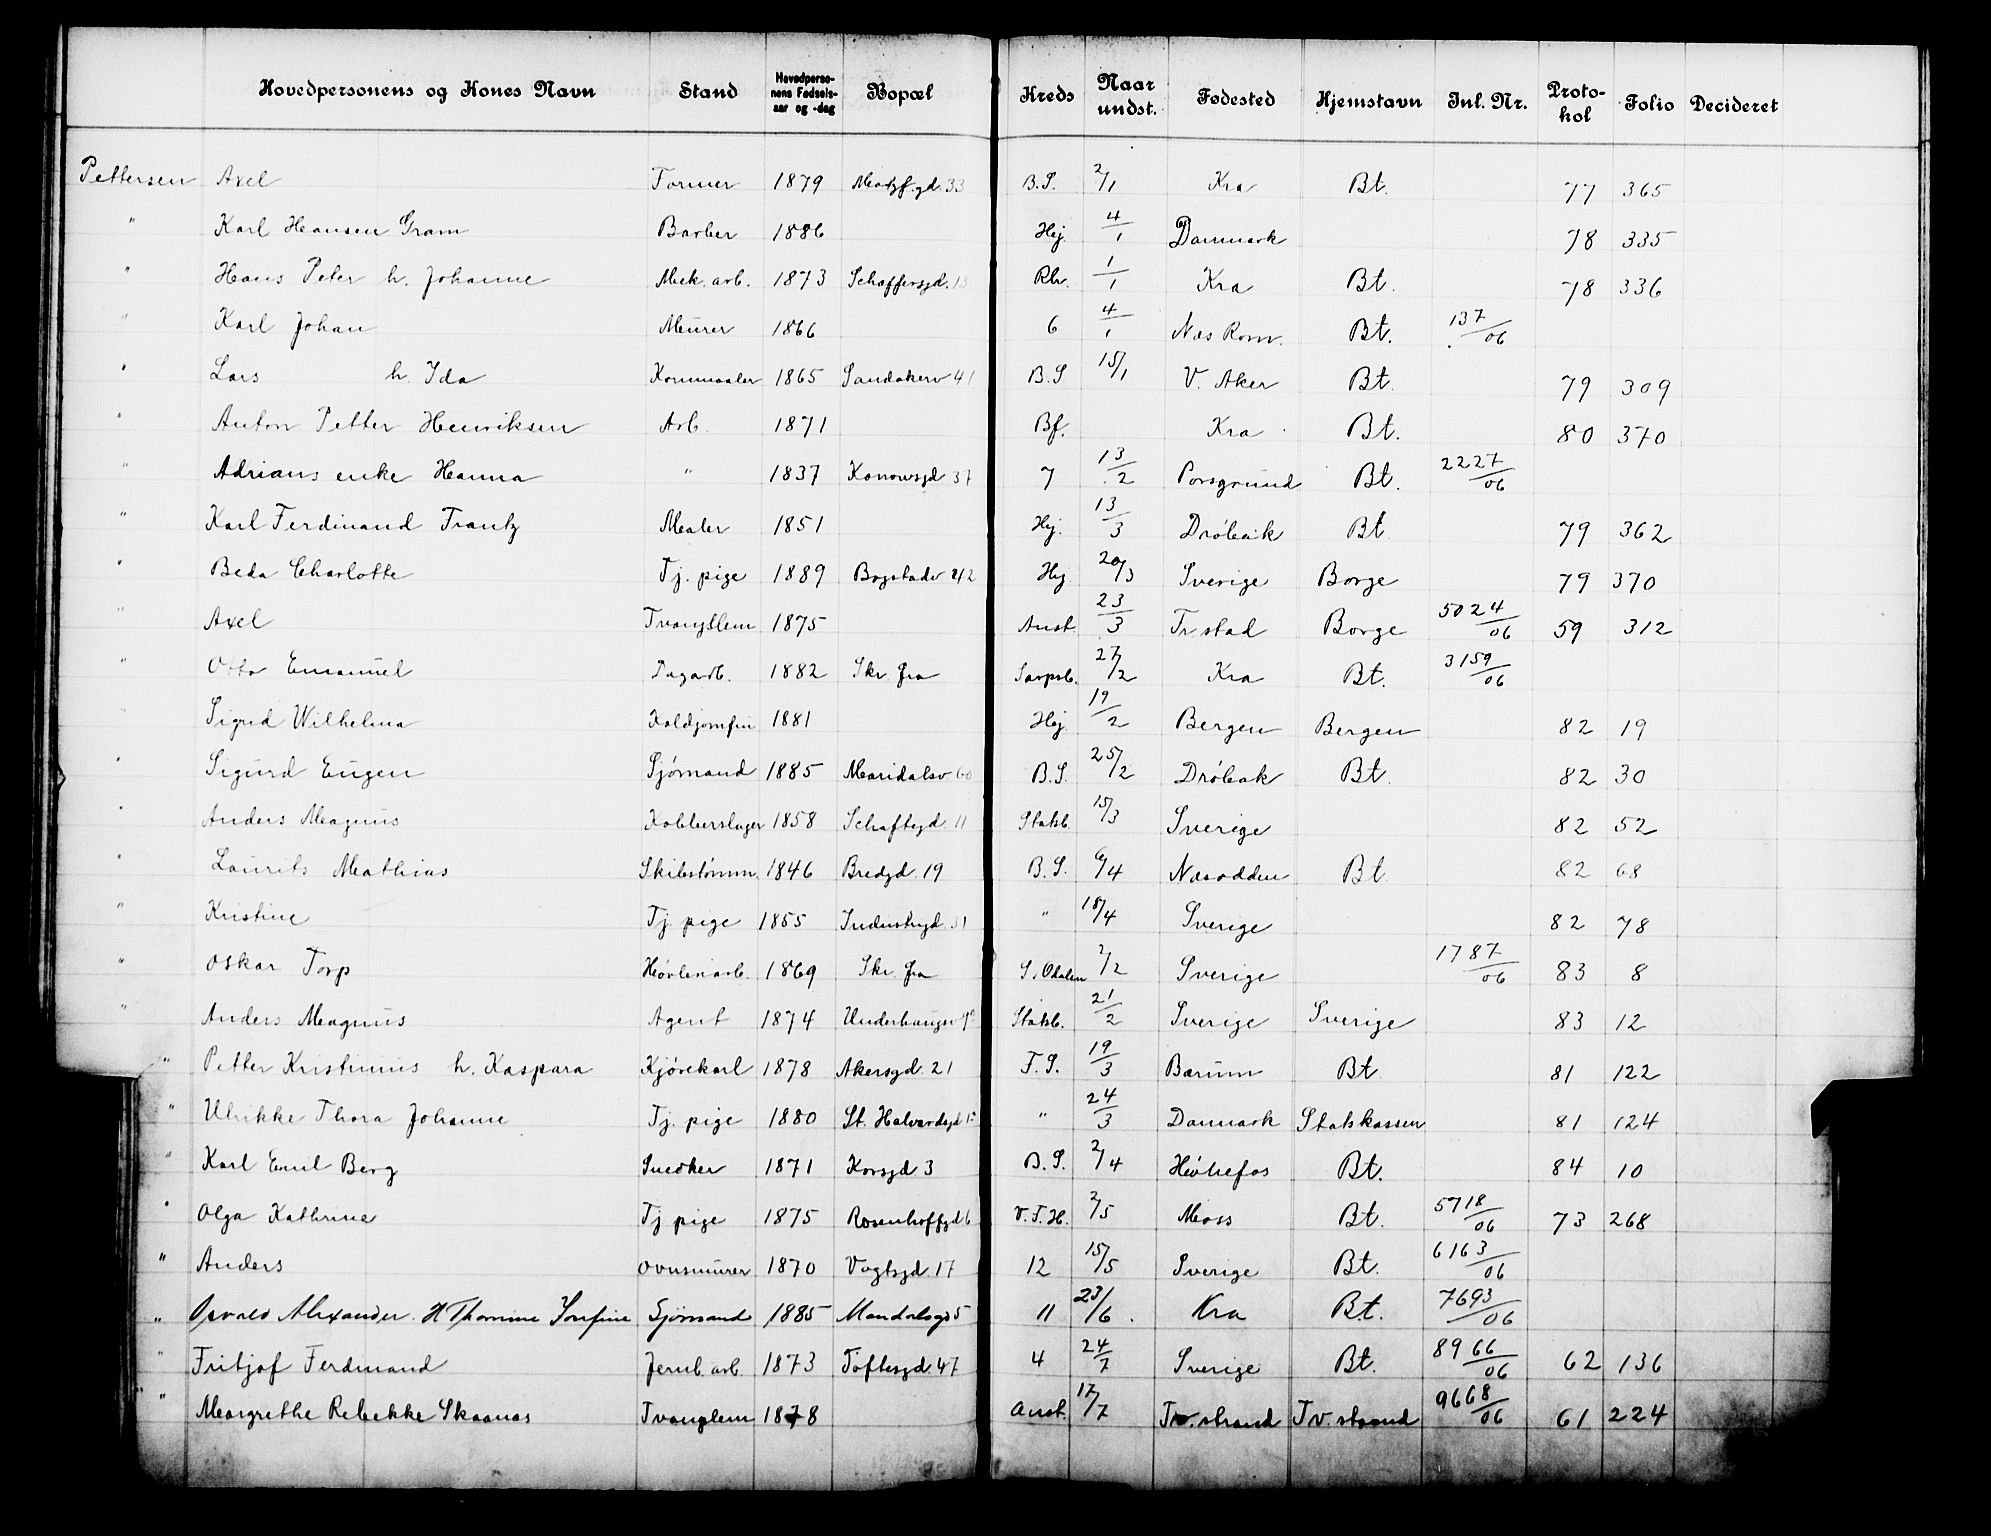 Hovedpersonens og Kones Navn Stand Hovedpersonens Fødselsaar og -dag Bopæl Kreds Naar undst. Fødested Hjemstavn Inl. Nr. Protokol Folio Decideret
Pettersen Axel Former 1879 33 B.S. 2/1 Kra Bt. 77 365
" Karl Hansen Gram Barber 1886 Hej 4/1 Danmark 78 335
" Hans Peter h. Johanne Mek. arb. 1873 Schaffersgd. 13 Rh. 1/1 Kra Bt. 78 336
" Karl Johan Murer 1866 6 4/1 Næs Rom. Bt. 137/06
" Lars h. Ida Kornmaaler 1865 Sandakerv 41 B.S 15/1 V. Aker Bt. 79 309
" Anton Petter Henriksen Arb. 1871 Bf. Kra Bt. 80 370
" Adrians enke Hanna " 1837 Konowsgd 37 7 13/2 Porsgrund Bt. 2227/06
" Karl Ferdinand Frantz Maler 1851 Hej. 13/3 Drøbak Bt. 79 362
" Beda Charlotte Tj. pige 1889 Bogstadv 42 Hej 20/3 Sverige Borge 79 370
" Axel Tvangslem 1875 Anst. 23/3 Fr stad Borge 5024/06 59 312
" Otto Emanuel Dagarb. 1882 Skr. fra Sarpsb. 27/2 Kra Bt. 3159/06
" Sigrid Wilhelma Koldjomfru 1881 Hej 19/2 Bergen Bergen 82 19
" Sigurd Eugen Sjømand 1885 Maridalsv 60 B.S. 25/2 Drøbak Bt. 82 30
" Anders Magnus Kobberslager 1858 Schaftsgd. 11 Statsb. 15/3 Sverige 82 52
" Laurits Mathias Skibstømm. 1846 Bredgd. 19 B.S. 6/4 Næsodden Bt 82 68
" Kristine Tj. pige 1855 Industrigd. 31 " 18/4 Sverige 82 78
" Oskar Torp Høvleriarb. 1869 Skr. fra S. Odalen 2/2 Sverige 1787/06 83 8
" Anders Magnus Agent 1874 Underhaugsv Statsb. 21/2 Sverige Sverige 83 12
" Petter Kristinius h. Kaspara Kjørekarl 1878 Akersgd. 21 F.S. 19/3 Bærum Bt 81 122
" Ulrikke Thora Johanne Tj. pige 1880 St. Halvardsgd " 24/3 Danmark Statskassen 81 124
" Karl Emil Berg Snedker 1871 Korsgd. 3 B.S. 2/4 Hønefos Bt. 84 10
" Olga Kathrine Tj pige 1875 Rosenhoffgd 6 V.F.H. 2/5 Moss Bt. 5718/06 73 268
" Anders Ovnsmurer 1870 Vogtsgd. 17 12 15/5 Sverige Bt. 6163/06
" Osvald Alexander. H Thomine Josefine Sjømand 1885 Mandalsgd 5 11 23/6. Kra Bt. 7693/06
" Fritjof Ferdinand Jernb. arb. 1873 Toftesgd. 47 4 24/7 Sverige Bt. 8966/06 62 136
" " Margrethe Rebekke Skaanas Tvangslem 1878 Anst. 17/7 Tv. strand Tv. strand 9668/06 61 224